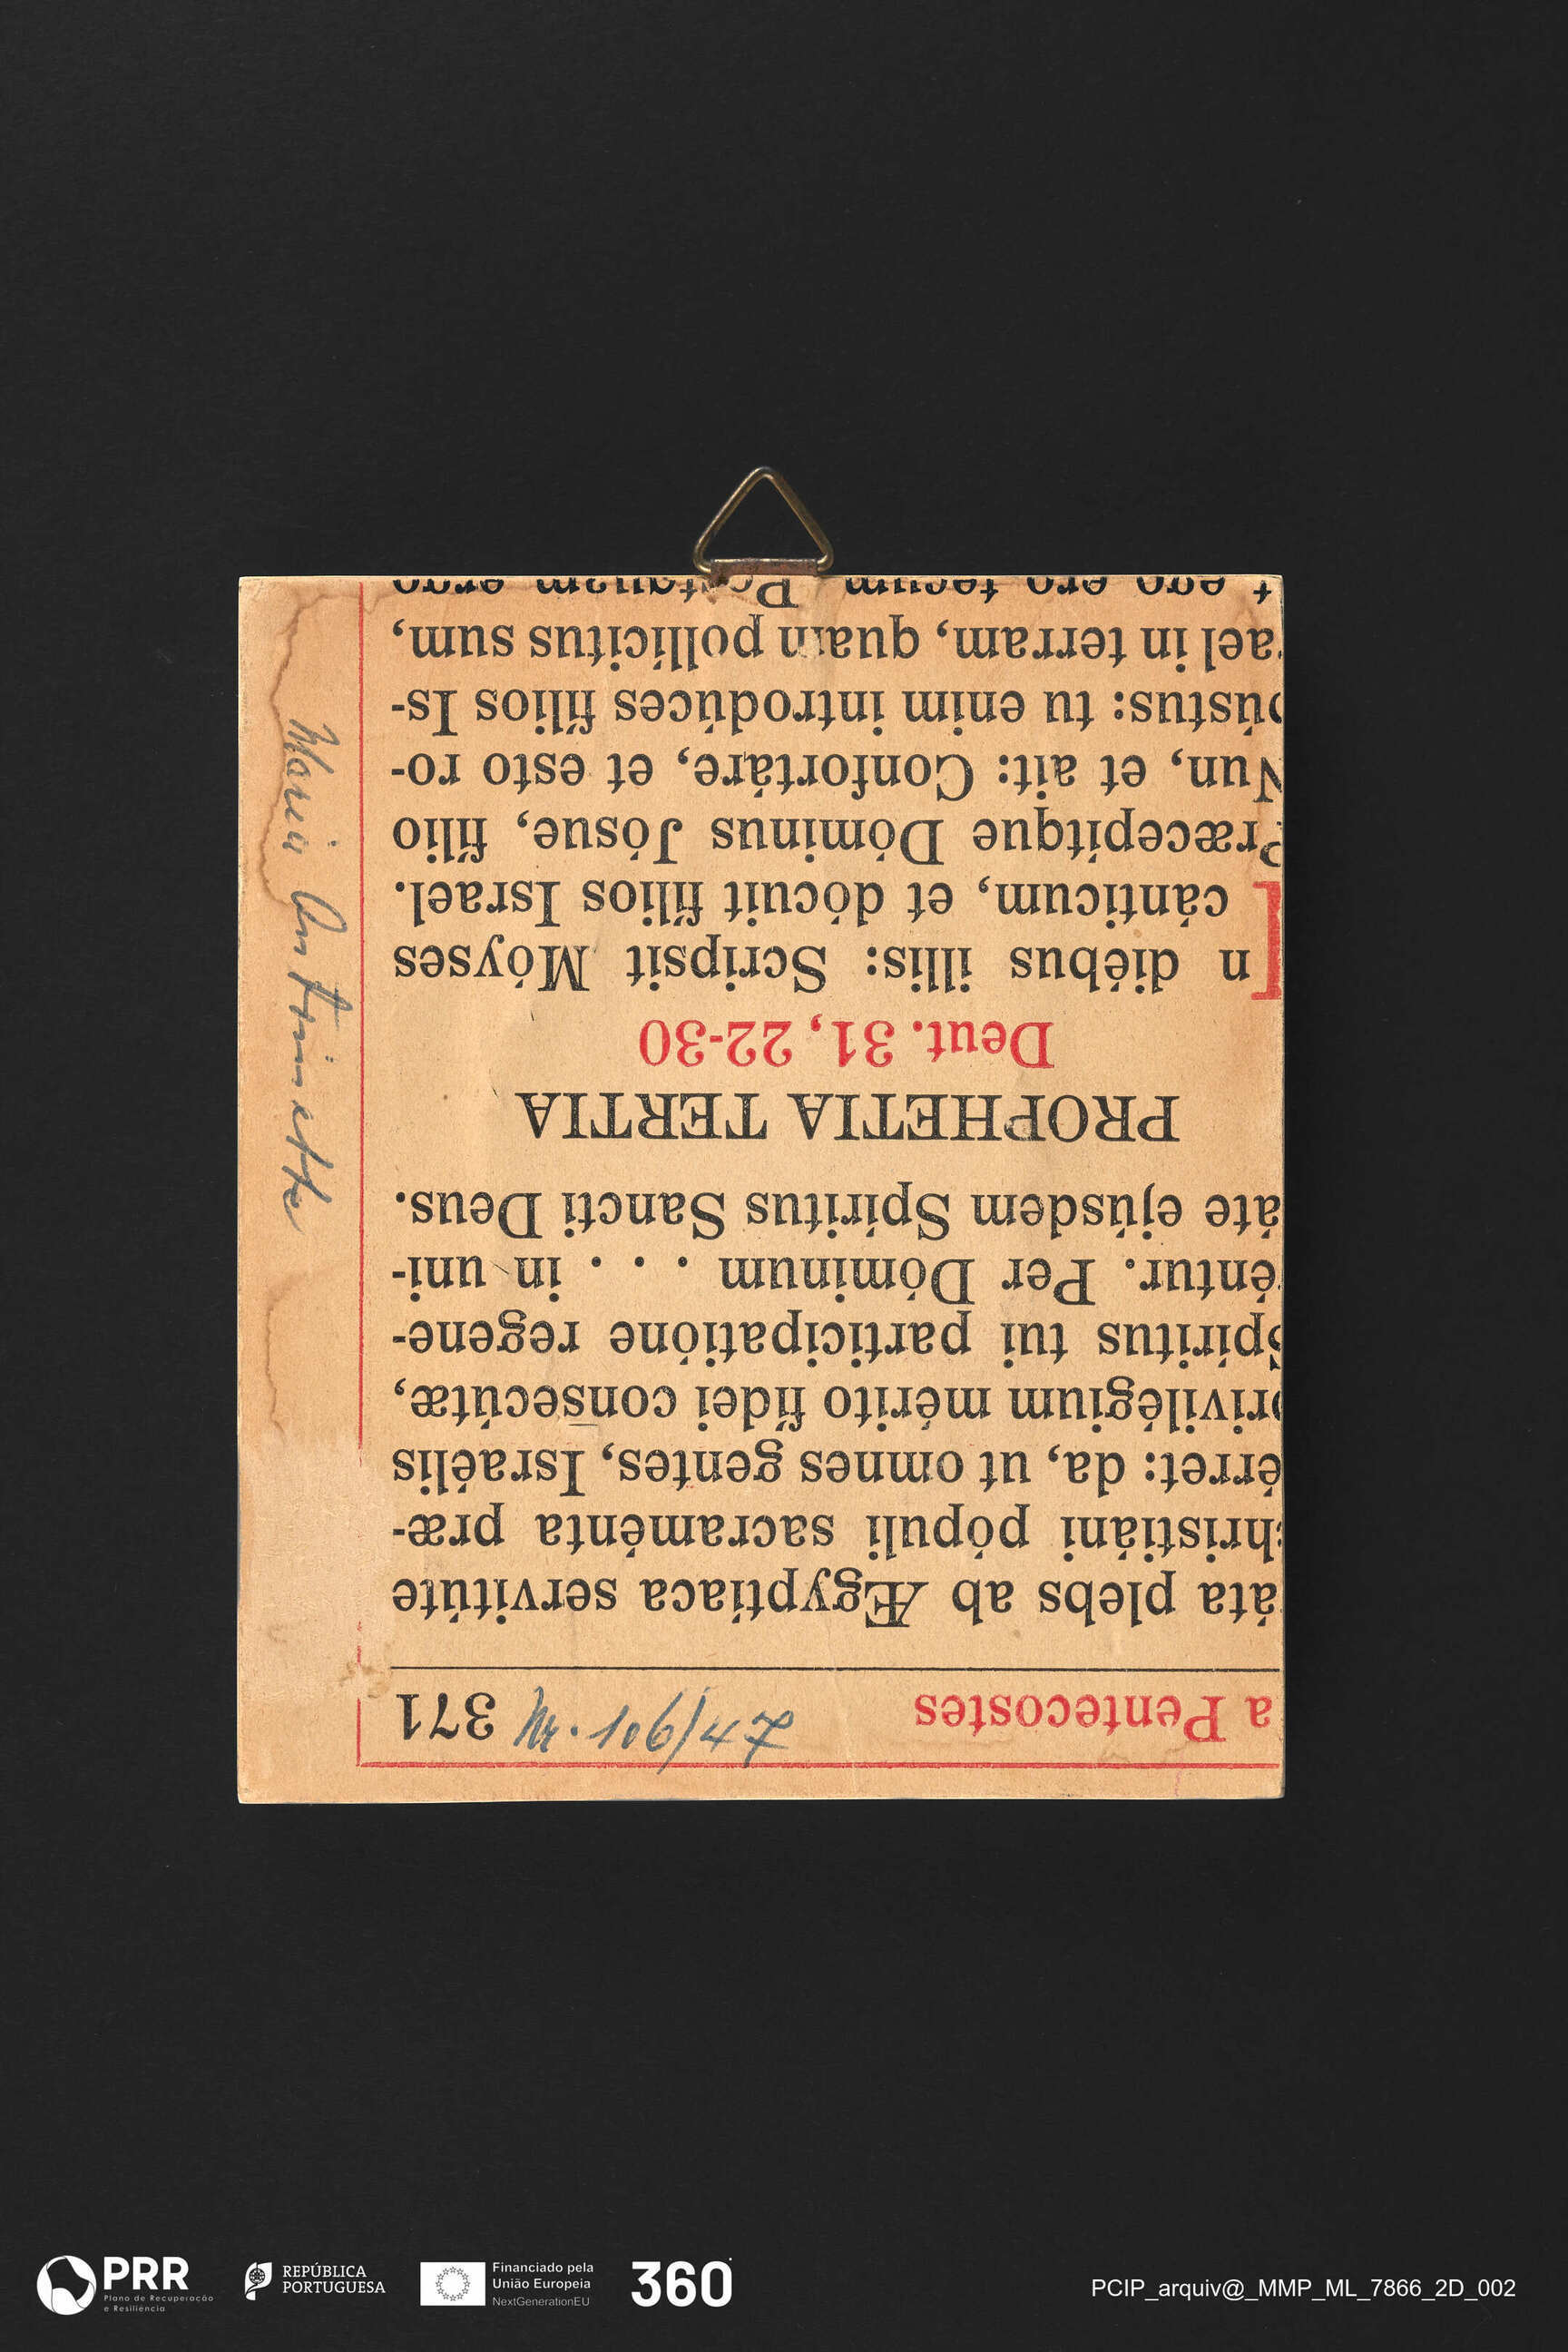 a Pentecostes 371
Nr. 106/47
áta plebs ab Ægyptíaca servitúte
christiáni pópuli sacraménta præ-
érret: da, ut omnes gentes, Israélis
privilégium mérito fídei consecútæ,
Spíritus tui participatióne regene-
éntur. Per Dóminum . . . in uni-
áte ejúsdem Spíritus Sancti Deus.
PROPHETIA TERTIA
Deut. 31, 22-30
In diébus illis: Scripsit Móyses
cánticum, et dócuit fílios Israel.
Præcepítque Dóminus Jósue, fílio
Nun, et ait: Confortáre, et esto ro-
bústus: tu enim introdúces fílios Is-
rael in terram, quam pollícitus sum,
t ego ero tecum. Postquam ergo
Maria Antoinette
PRR
Plano de Recuperação
e Resiliência
REPÚBLICA
PORTUGUESA
Financiado pela
União Europeia
NextGenerationEU
360
PCIP_arquiv@_MMP_ML_7866_2D_002